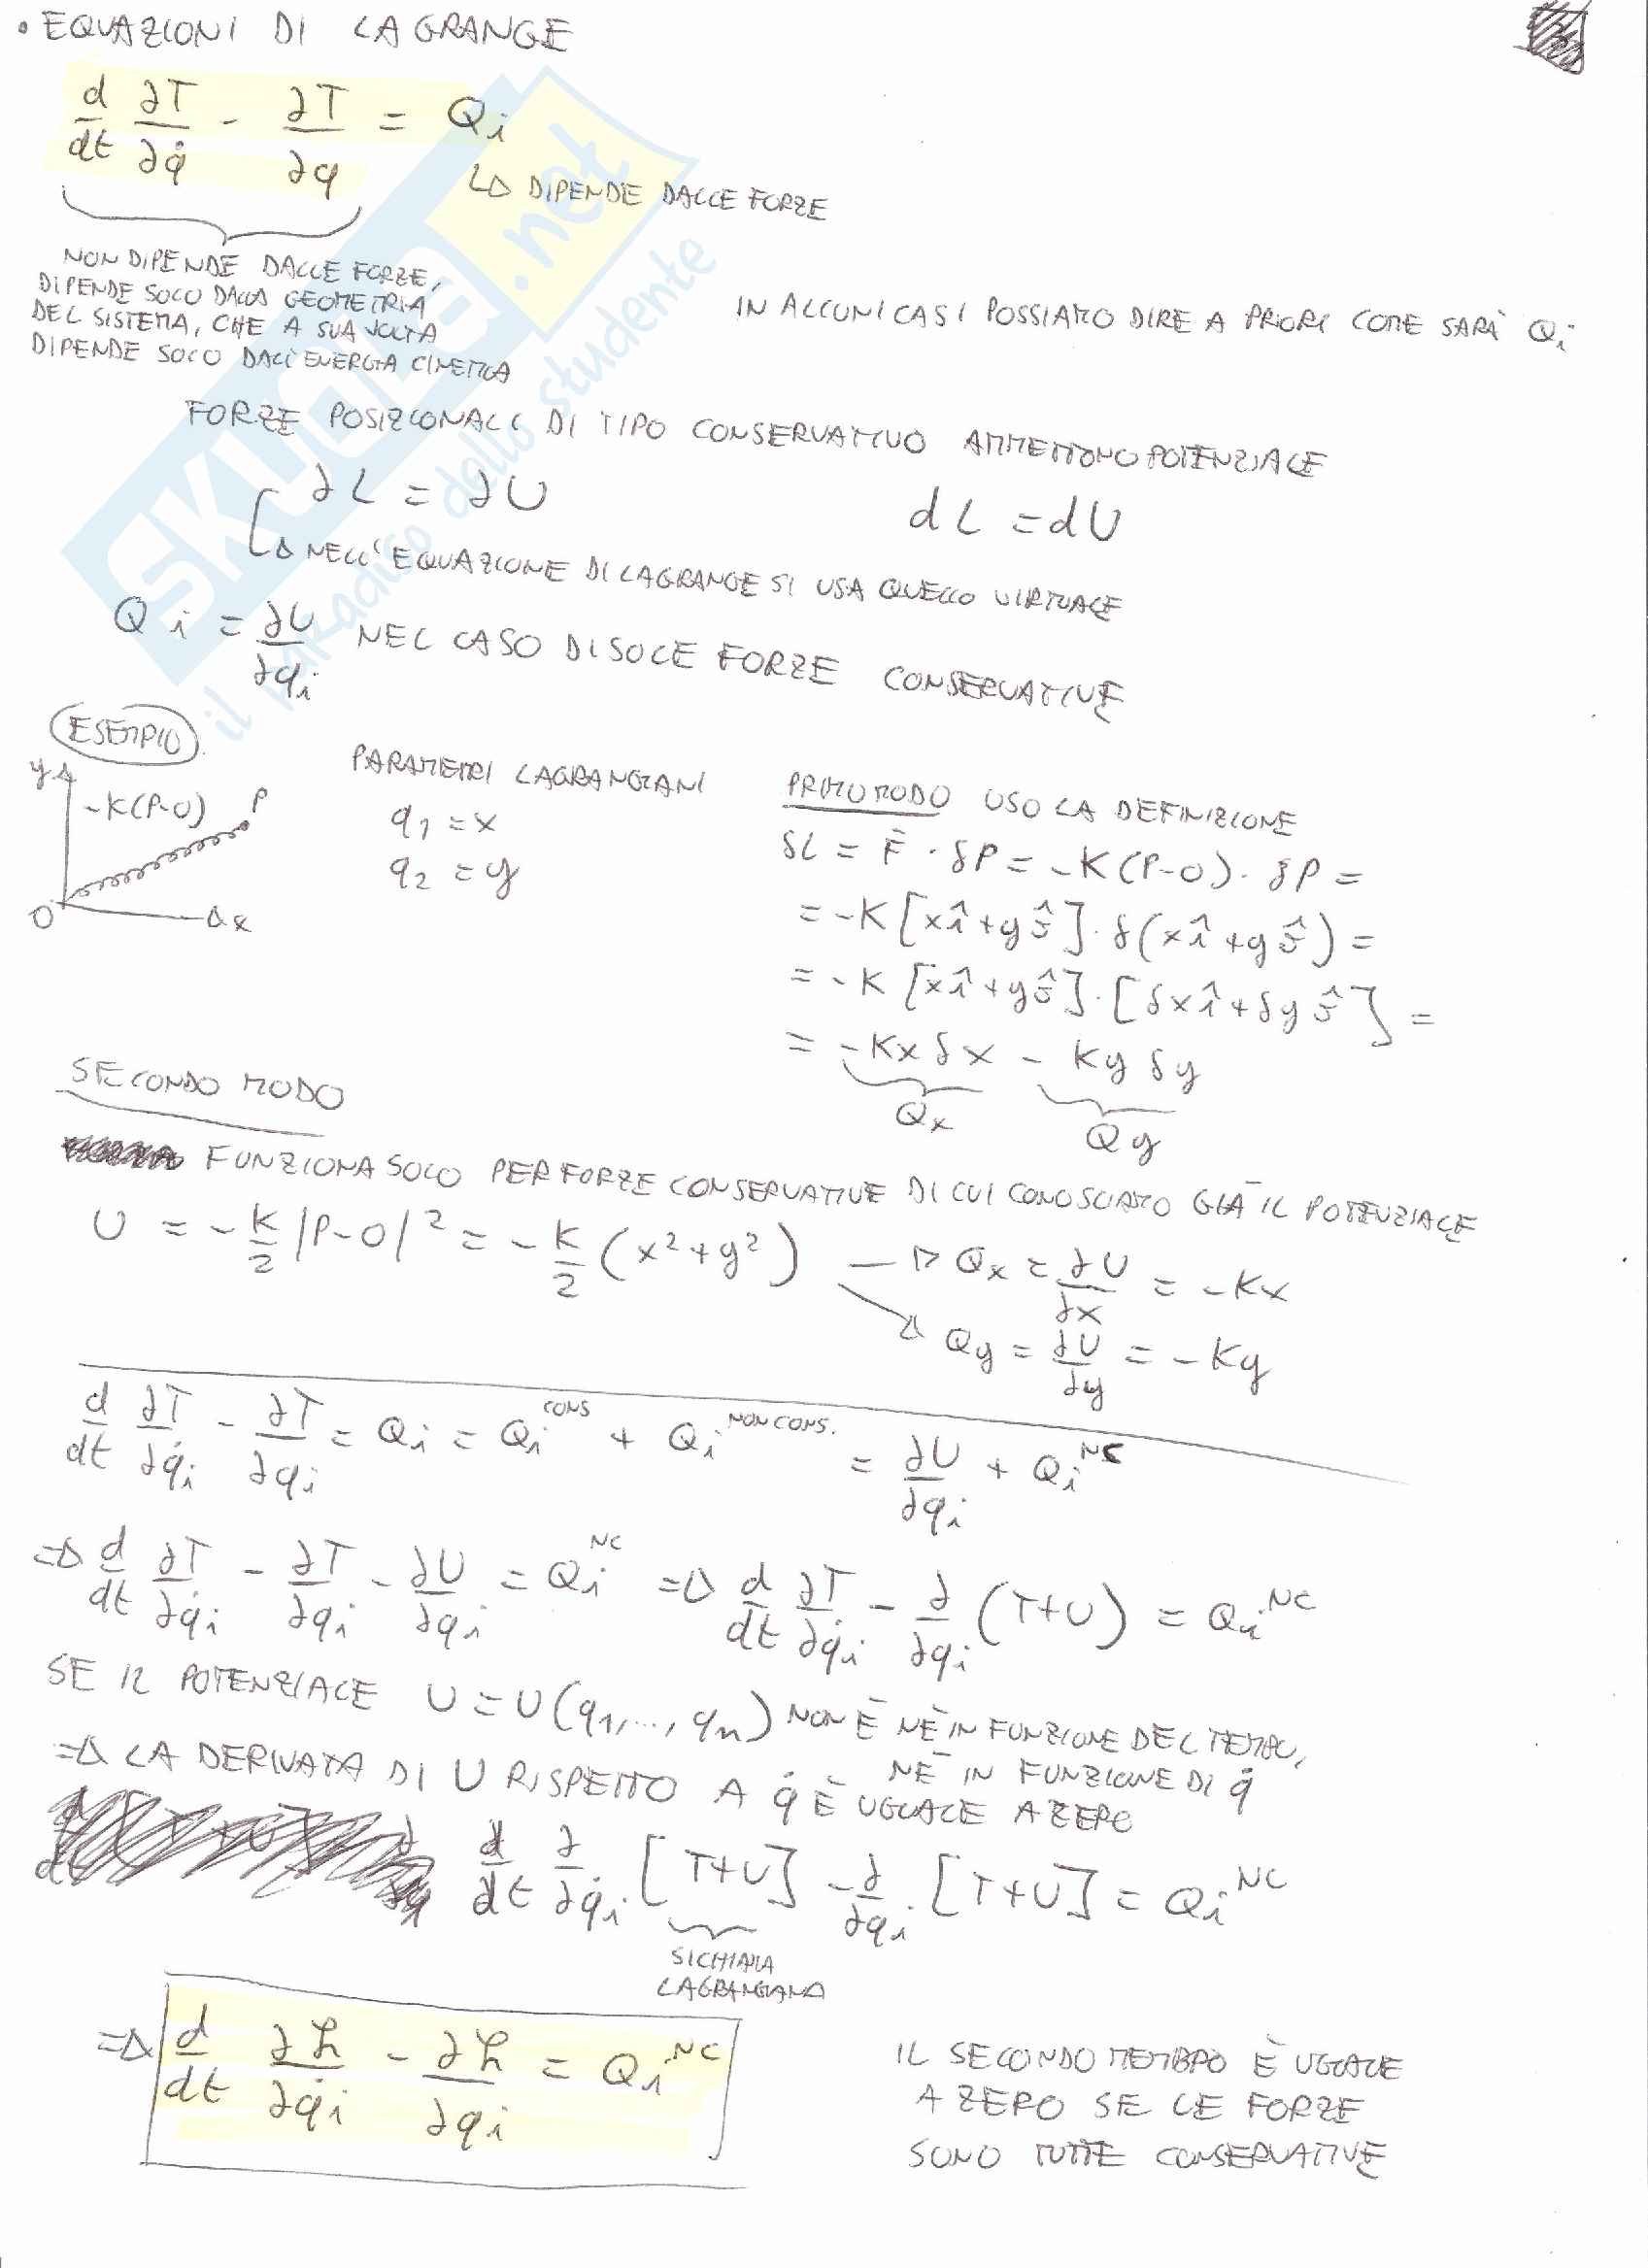 • EQUAZIONI DI LAGRANGE
d/dt ∂T/∂q̇ - ∂T/∂q = Qi
DIPENDE DALLE FORZE
NON DIPENDE DALLE FORZE,
DIPENDE SOLO DALLA GEOMETRIA
DEL SISTEMA, CHE A SUA VOLTA
DIPENDE SOLO DALL'ENERGIA CINETICA
IN ALCUNI CASI POSSIAMO DIRE A PRIORI COME SARÀ Qi
FORZE POSIZIONALI DI TIPO CONSERVATIVO AMMETTONO POTENZIALE
∂L = ∂U dL = dU
NELL'EQUAZIONE DI LAGRANGE SI USA QUELLO VIRTUALE
Qi = ∂U/∂qi NEL CASO DI SOLE FORZE CONSERVATIVE
SKUOLA.net
il paradiso dello studente
ESEMPIO
y
-K(P-O) P
O x
PARAMETRI LAGRANGIANI
q1 = x
q2 = y
PRIMO MODO USO LA DEFINIZIONE
δL = F̄ · δP = -K(P-O) · δP =
= -K[xî+yĵ] · δ(xî+yĵ) =
= -K[xî+yĵ] · [δxî+δyĵ] =
= -Kxδx - Kyδy
Qx Qy
SECONDO MODO
FUNZIONA SOLO PER FORZE CONSERVATIVE DI CUI CONOSCIAMO GIÀ IL POTENZIALE
U = -K/2 |P-O|² = -K/2 (x²+y²) → Qx = ∂U/∂x = -Kx
Qy = ∂U/∂y = -Ky
d/dt ∂T/∂q̇i - ∂T/∂qi = Qi = Qi^CONS + Qi^NON CONS. = ∂U/∂qi + Qi^NC
⇒ d/dt ∂T/∂q̇i - ∂T/∂qi - ∂U/∂qi = Qi^NC ⇒ d/dt ∂T/∂q̇i - ∂/∂qi (T+U) = Qi^NC
SE IL POTENZIALE U = U(q1,...,qn) NON È NÈ IN FUNZIONE DEL TEMPO,
NÈ IN FUNZIONE DI q̇
⇒ LA DERIVATA DI U RISPETTO A q̇ È UGUALE A ZERO
d/dt ∂/∂q̇i [T+U] - ∂/∂qi [T+U] = Qi^NC
SI CHIAMA
LAGRANGIANA
⇒ d/dt ∂ℒ/∂q̇i - ∂ℒ/∂qi = Qi^NC
IL SECONDO MEMBRO È UGUALE
A ZERO SE LE FORZE
SONO TUTTE CONSERVATIVE